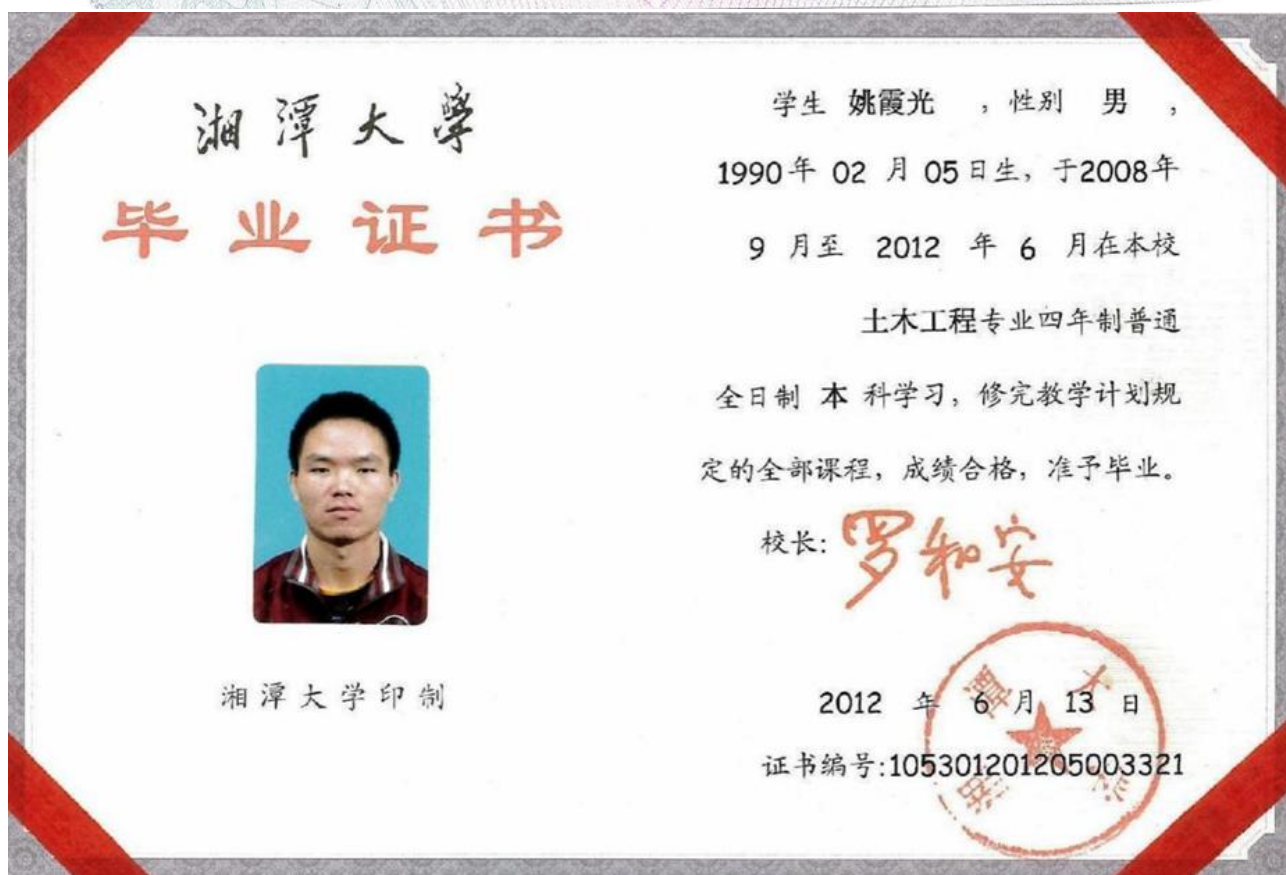 湘潭大學
毕业证书
湘潭大学印制
学生 姚霞光 ，性别 男 ，
1990年 02 月 05日生，于2008年
9 月至 2012 年 6 月在本校
土木工程专业四年制普通
全日制 本 科学习，修完教学计划规
定的全部课程，成绩合格，准予毕业。
校长：罗和安
2012 年 6 月 13 日
证书编号:105301201205003321
湘潭大学